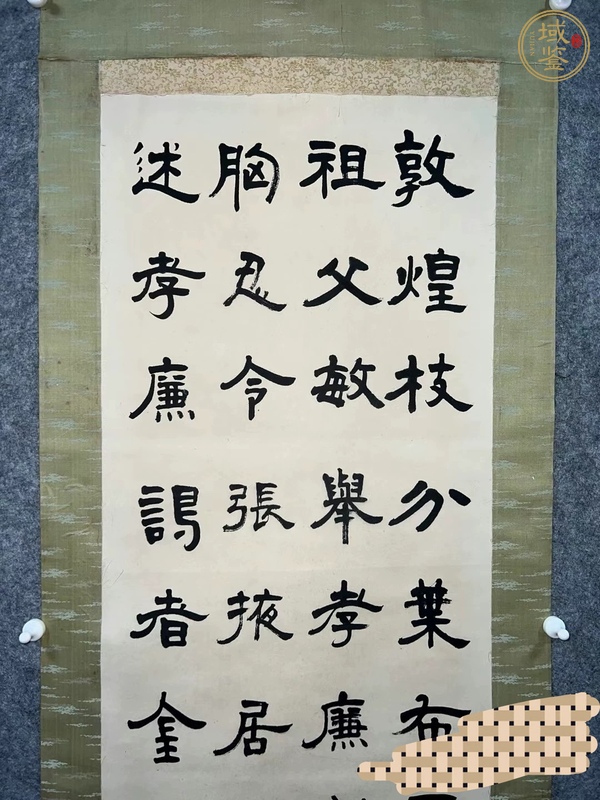 敦煌枝分葉布
祖父敏舉孝廉
胸忍令張掖居
述孝廉謁者金
域鉴